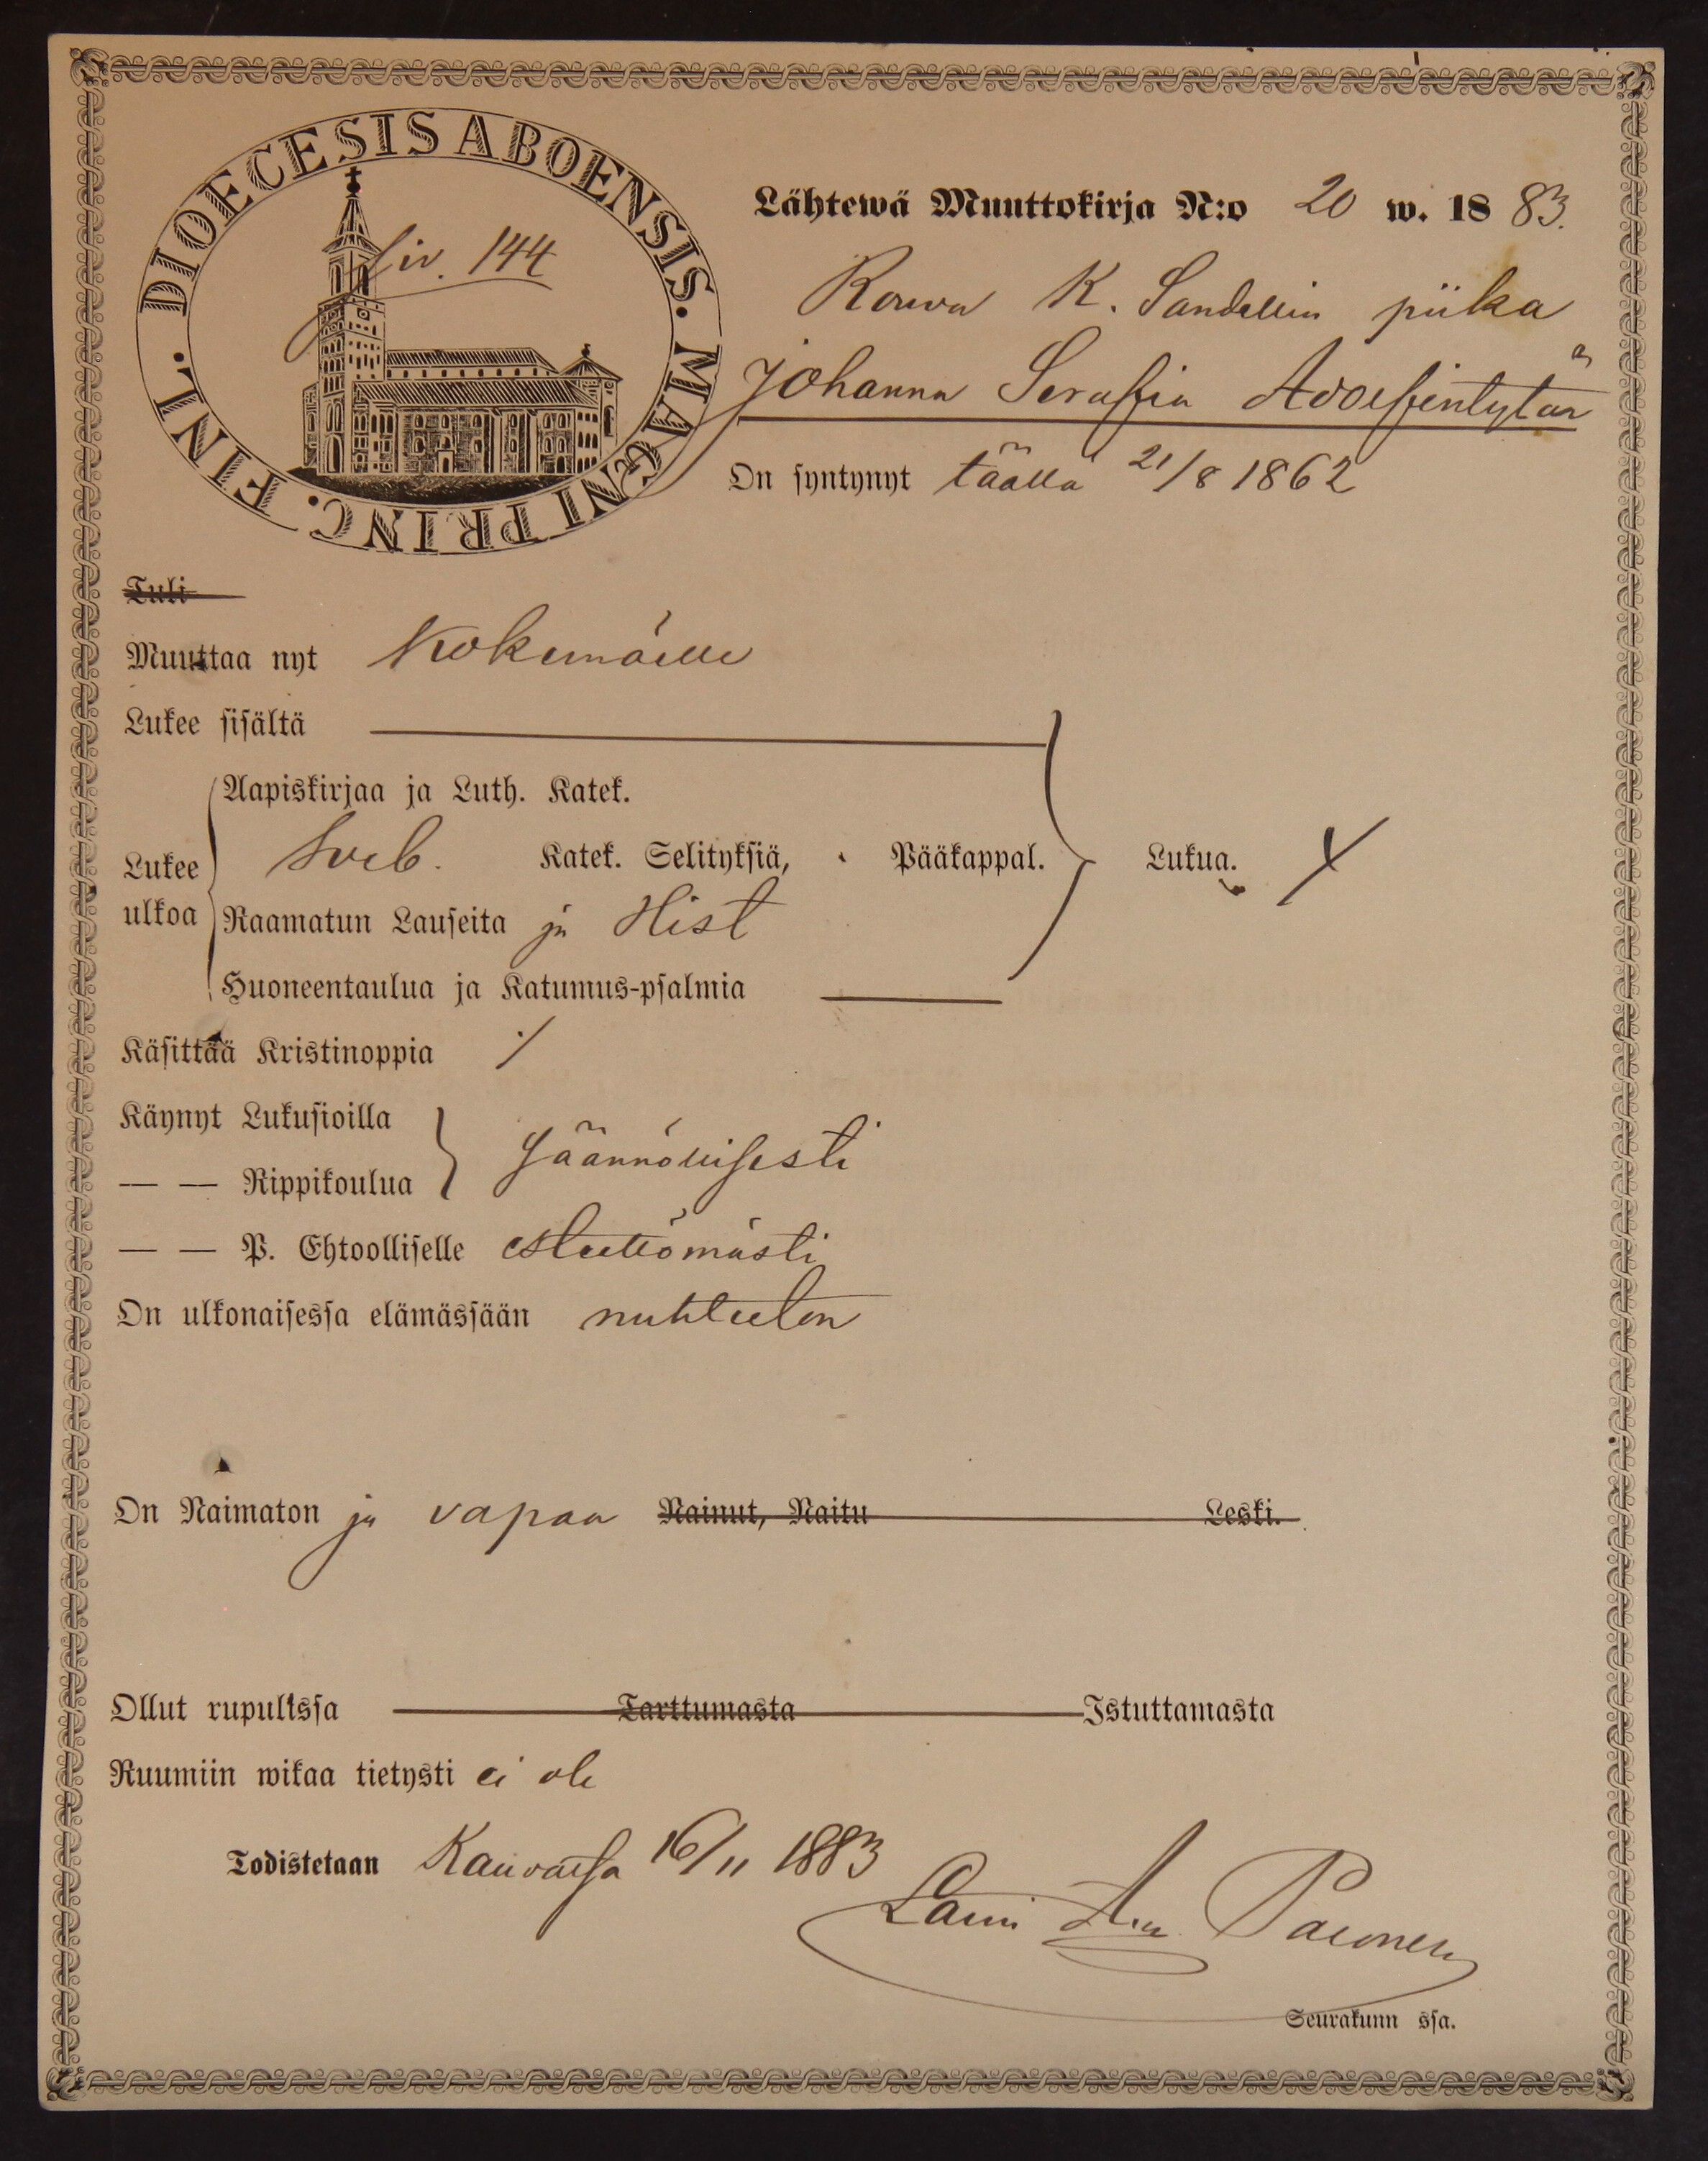 DIOECESIS ABOENSIS. MAGNI PRINC. FINL.
siv. 144
Lähtewä Muuttokirja N:o 20 w. 1883.
Rouva K. Sandellin piika
Johanna Serafia Adolfintytär
On syntynyt täällä 21/8 1862
Tuli
Muuttaa nyt Kokemäelle
Lukee sisältä
Aapiskirjaa ja Luth. Katek.
Lukee ulkoa
Sveb. Katek. Selityksiä, Pääkappal. Lukua.
Raamatun Lauseita ja Hist
Huoneentaulua ja Katumus-psalmia
Käsittää Kristinoppia
Käynyt Lukusioilla
— — Rippikoulua
säännöllisesti
— — P. Ehtoolliselle esteettömästi
On ulkonaisessa elämässään nuhteeton
On Naimaton ja vapaa Nainut, Naitu Leski.
Ollut rupulissa Tarttumasta Istuttamasta
Ruumiin wikaa tietysti ei ole
Todistetaan Kauvatsa 16/11 1883
Lauri Paronen
Seurakunn ssa.